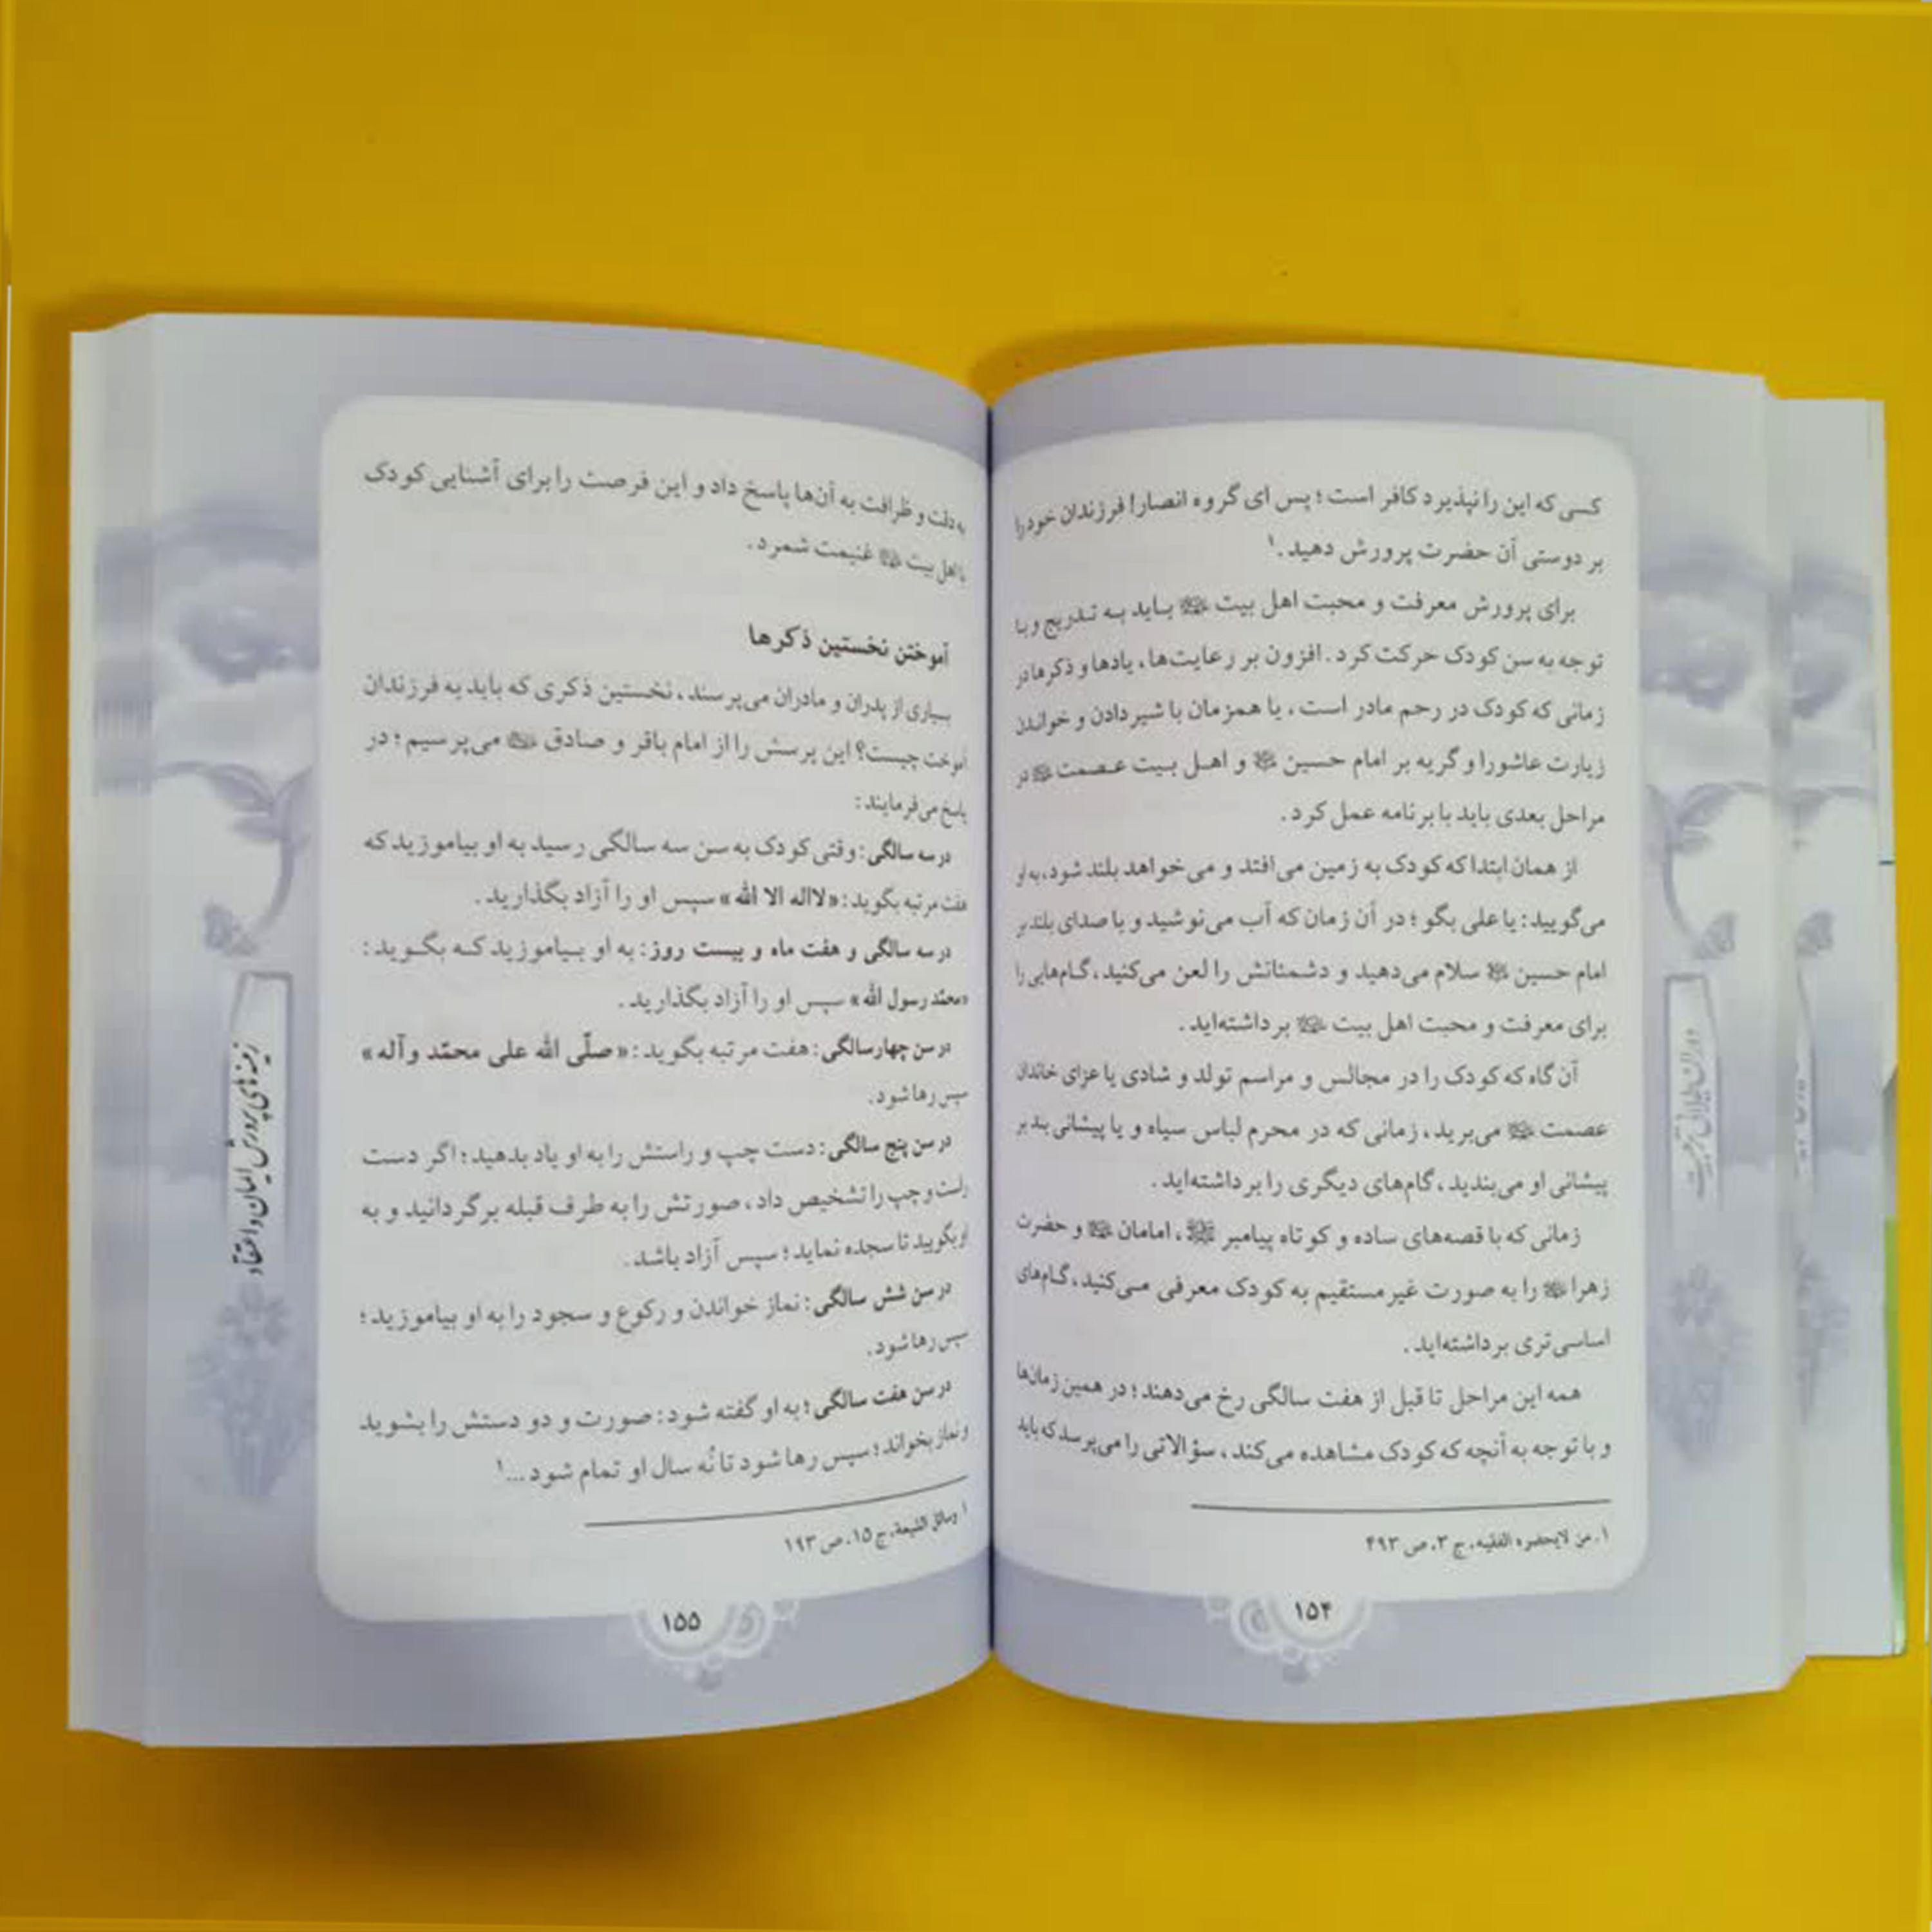 کسی که این را نپذیرد کافر است؛ پس ای گروه انصار! فرزندان خود را
بر دوستی آن حضرت پرورش دهید.۱
برای پرورش معرفت و محبت اهل بیت باید به تدریج و با
توجه به سن کودک حرکت کرد. افزون بر رعایت‌ها، یادها و ذکرها در
زمانی که کودک در رحم مادر است، یا همزمان با شیر دادن و خواندن
زیارت عاشورا و گریه بر امام حسین و اهل بیت عصمت در
مراحل بعدی باید با برنامه عمل کرد.
از همان ابتدا که کودک به زمین می‌افتد و می‌خواهد بلند شود، به او
می‌گویید: یا علی بگو؛ در آن زمان که آب می‌نوشید و با صدای بلند بر
امام حسین سلام می‌دهید و دشمنانش را لعن می‌کنید، گام‌هایی را
برای معرفت و محبت اهل بیت برداشته‌اید.
آن گاه که کودک را در مجالس و مراسم تولد و شادی یا عزای خاندان
عصمت می‌برید، زمانی که در محرم لباس سیاه و یا پیشانی بند بر
پیشانی او می‌بندید، گام‌های دیگری را برداشته‌اید.
زمانی که با قصه‌های ساده و کوتاه پیامبر ﷺ، امامان و حضرت
زهرا را به صورت غیرمستقیم به کودک معرفی می‌کنید، گام‌های
اساسی‌تری برداشته‌اید.
همه این مراحل تا قبل از هفت سالگی رخ می‌دهند؛ در همین زمان‌ها
و با توجه به آنچه که کودک مشاهده می‌کند، سؤالاتی را می‌پرسد که باید
۱. من لایحضره الفقیه، ج ۳، ص ۴۹۳
۱۵۴
دوران طلایی تربیت
به دقت و ظرافت به آن‌ها پاسخ داد و این فرصت را برای آشنایی کودک
با اهل بیت غنیمت شمرد.
آموختن نخستین ذکرها
بسیاری از پدران و مادران می‌پرسند، نخستین ذکری که باید به فرزندان
آموخت چیست؟ این پرسش را از امام باقر و صادق می‌پرسیم؛ در
پاسخ می‌فرمایند:
در سه سالگی: وقتی کودک به سن سه سالگی رسید به او بیاموزید که
هفت مرتبه بگوید: «لااله الا الله» سپس او را آزاد بگذارید.
در سه سالگی و هفت ماه و بیست روز: به او بیاموزید که بگوید:
«محمّد رسول الله» سپس او را آزاد بگذارید.
در سن چهار سالگی: هفت مرتبه بگوید: «صلّی الله علی محمّد و آله»
سپس رها شود.
در سن پنج سالگی: دست چپ و راستش را به او یاد بدهید؛ اگر دست
راست و چپ را تشخیص داد، صورتش را به طرف قبله برگردانید و به
او بگویید تا سجده نماید؛ سپس آزاد باشد.
در سن شش سالگی: نماز خواندن و رکوع و سجود را به او بیاموزید؛
سپس رها شود.
در سن هفت سالگی؛ به او گفته شود: صورت و دو دستش را بشوید
و نماز بخواند؛ سپس رها شود تا نُه سال او تمام شود...۱
۱ وسائل الشیعة، ج ۱۵، ص ۱۹۳
۱۵۵
زمینه‌های پرورش ایمان و اعتقاد